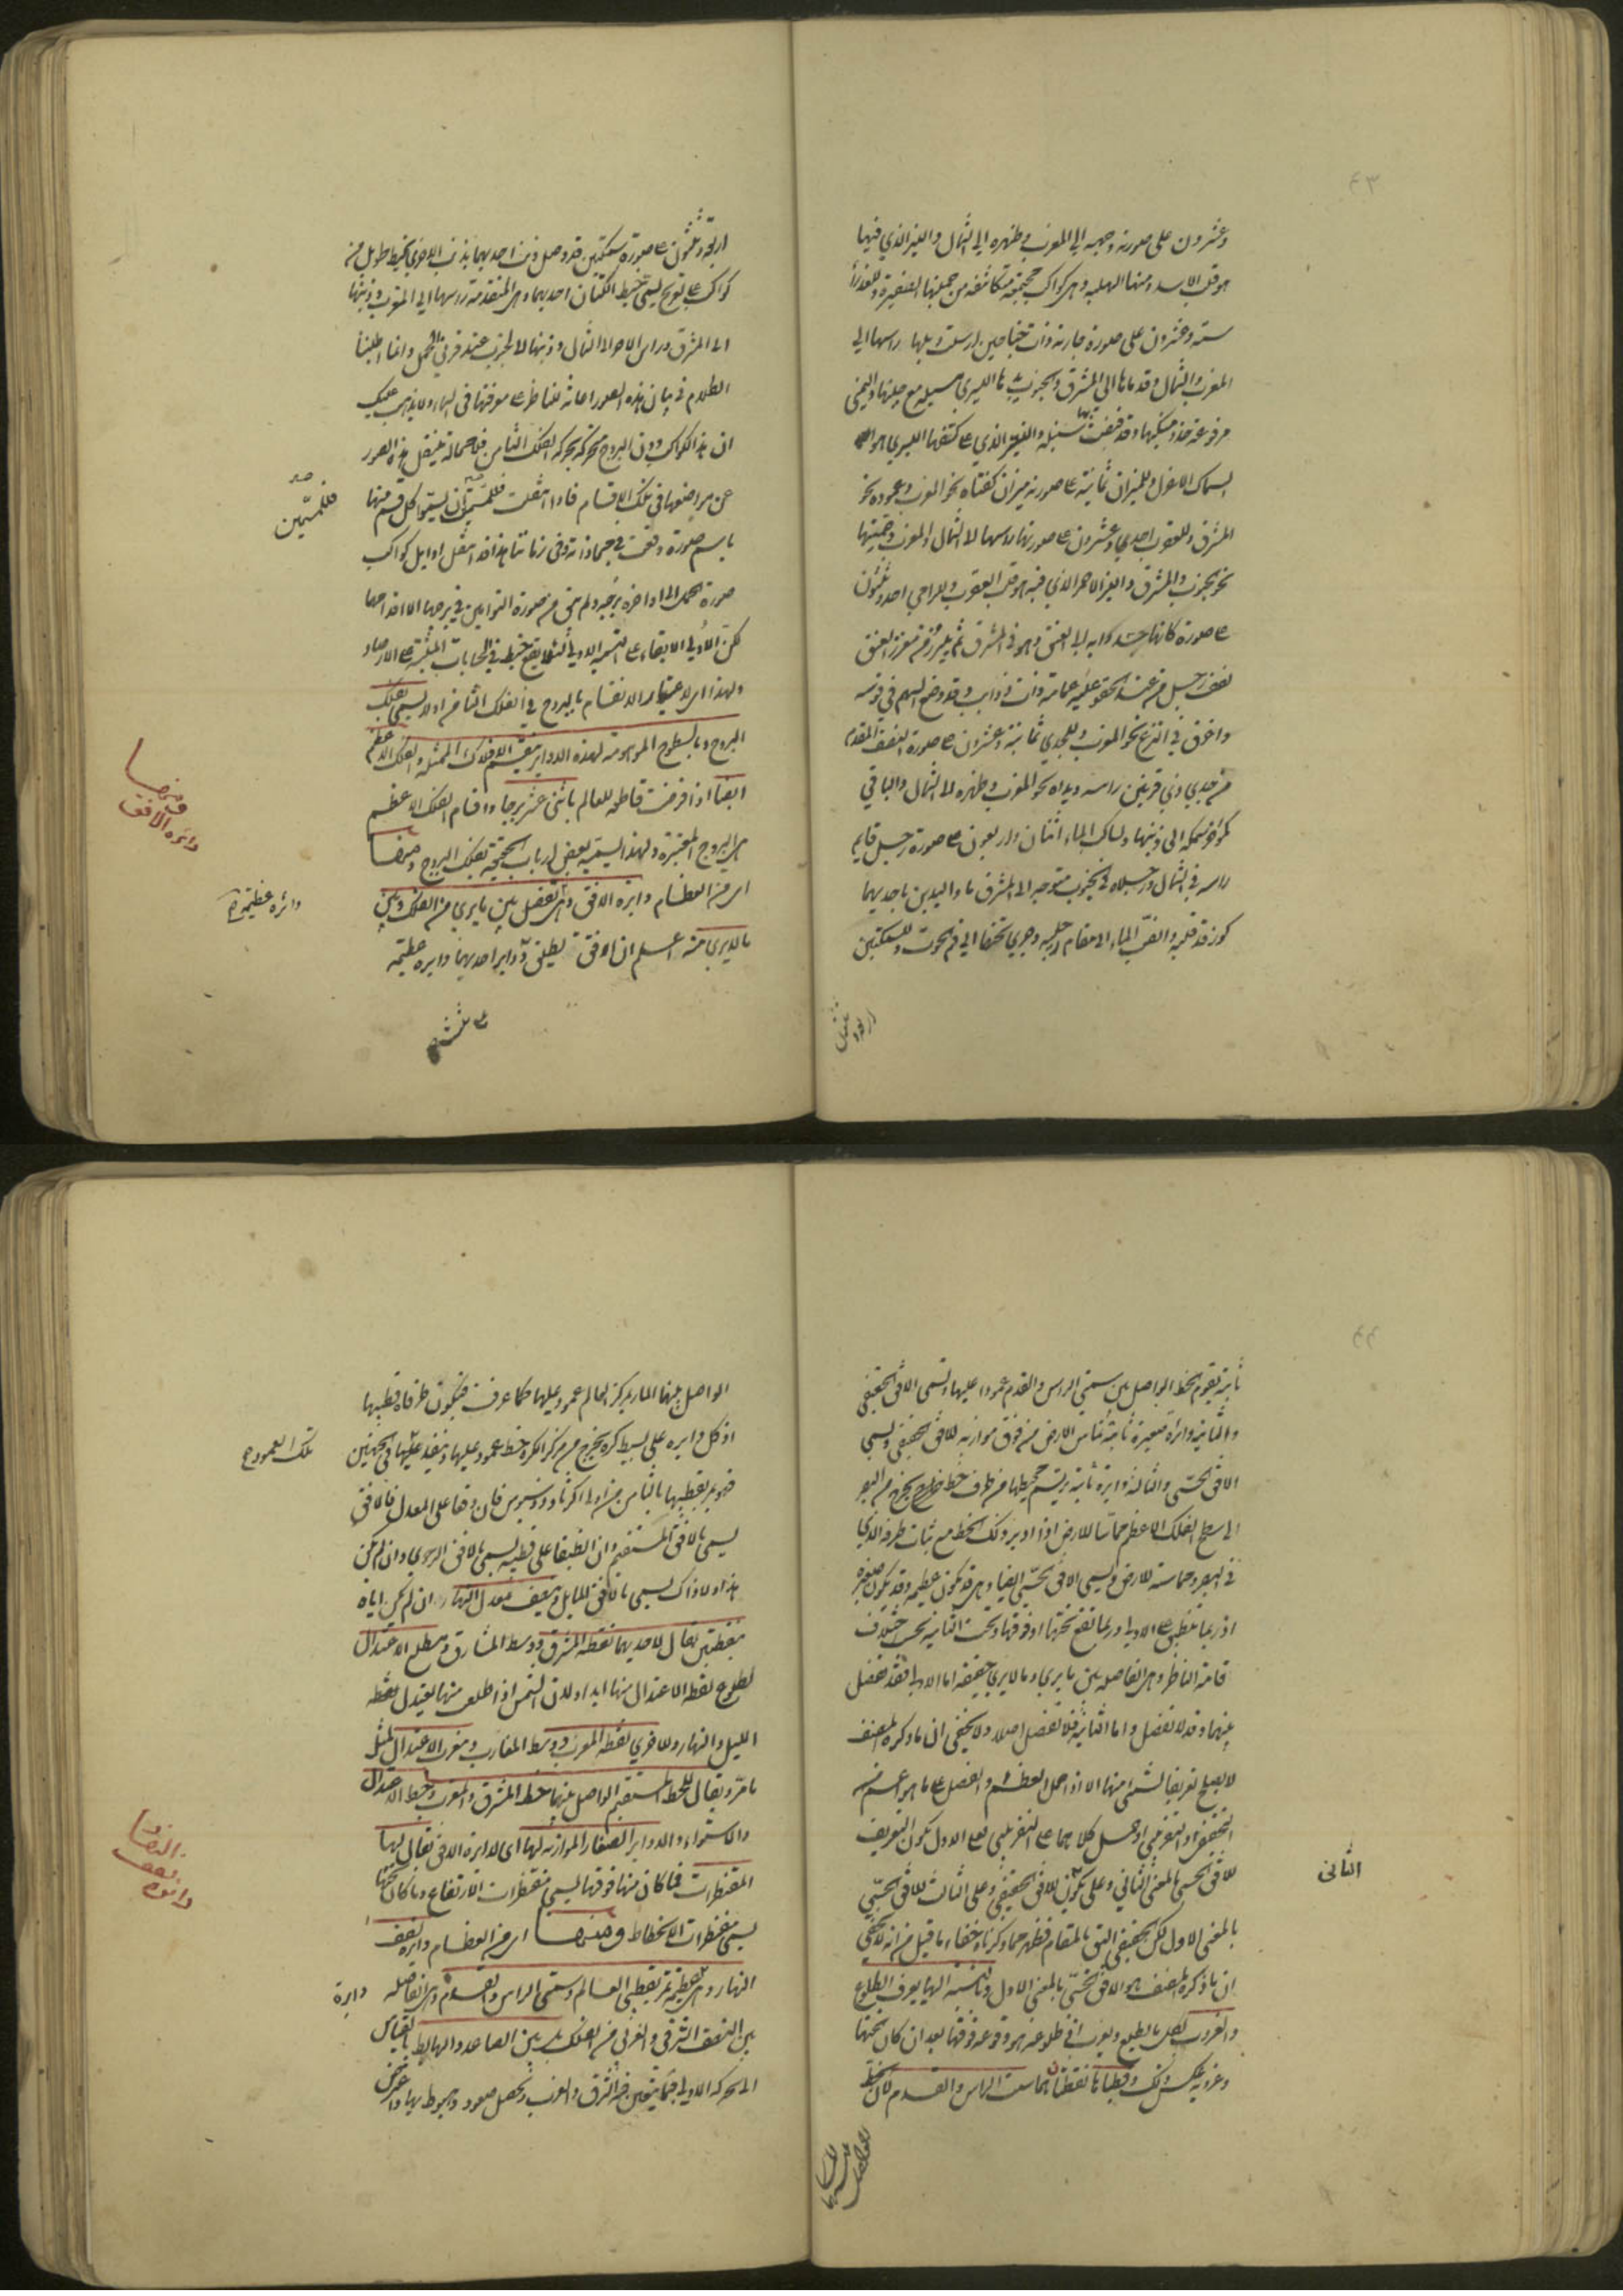 ٤٣
وعشرون على صورته وجهه الى المغرب وظهره الى الشمال والنير الذي فيها
هو قلب الاسد ومنها الهلبه وهى كواكب مجتمعة متكاثفه من جملتها الضفيرة وللعذراء
ستة وعشرون على صورة جارية ذات جناحين ارسلت ذيلها راسها الى
المغرب والشمال وقدماها الى المشرق والجنوب يدها اليسرى مسبلة مع جنبها واليمنى
مرفوعة حذو منكبها وقد قبضت بها سنبله والنير الذي على كتفها اليسرى هو
السماك الاعزل وللميزان ثمانية على صورة ميزان كفتاه نحو المغرب وعموده نحو
المشرق وللعقرب احدى وعشرون على صورتها راسها الى الشمال والمغرب وحمتها
نحو الجنوب والمشرق والنير الاحمر الذي فيه هو قلب العقرب وللرامي احد وثلثون
على صورة كانها جسد دابه الى العنق وهو في المشرق ثم يبرز من مغرز العنق
نصف رجل من عند الحقو عليه عمامة ذات ذوايب وقد وضع السهم في قوسه
واغرق في النزع نحو المغرب وللجدي ثمانية وعشرون على صورة النصف المقدم
من جدي ذي قرنين راسه ويداه نحو المغرب وظهره الى الشمال والباقي
كمؤخر سمكه الى ذنبها ولساكب الماء اثنان واربعون على صورة رجل قايم
راسه في الشمال ورجلاه في الجنوب متوجه الى المشرق ماد اليدين باحديهما
كوز قد قلبه وانصب الماء الى مقام رجليه وجرى تحتها الى فم الحوت وللسمكتين
اربعة وثلثون
اربعة وثلثون على صورة سمكتين قد وصل ذنب احديهما بذنب الاخرى بخيط طويل من
كواكب على تعويج يسمى خيط الكتان احديهما وهى المتقدمة راسها الى المغرب وذنبها
الى المشرق وراس الاخرى الى الشمال وذنبها الى الجنوب عند قرني الحمل وانما اطلبنا
الكلام في بيان هذه الصور اعانة للناظر على معرفتها في السماء ولا يذهب عليك
ان هذه الكواكب دون البروج متحركة بحركة الفلك الثامن فلا محالة ينتقل هذه الصور
عن مواضعها في تلك الاقسام فاذا انتقلت فللمسمين ان يسموا كل قسم منها
فللمسمين صح
باسم صورة وقعت في محاذاته وفي زماننا هذا قد انتقل اوايل كواكب
صورة الحمل الى اواخره برجيه ولم يبق من صورة التوامين في برجها الا اقدامها
لكن الاولى الابقاء على التسمية الاولى لئلا يقع خبط في الحسابات المثبتة على الارصاد
ولهذا اى لاعتبار الانقسام بالبروج في الفلك الثامن اولا يسمى بفلك
البروج وبالسطوح الموهومة لهذه الدواير ينقسم الافلاك الممثلة والفلك الاعظم
ايضا اذا فرضت قاطعه للعالم باثنى عشر برجا واقسام الفلك الاعظم
هى البروج المعتبرة ولهذا يسميه بعض ارباب الحجية بفلك البروج ومنها
ومنها دائره الافق
اى من العظام دايره الافق وهى تفصل بين ما يرى من الفلك وبين
ما لا يرى منه اعلم ان الافق يطلق على دواير احديهما دايره عظيمه
دائره عظيمة
على ثلث
٤٤
ثابتة يقوم الخط الواصل بين سمتي الراس والقدم عمودا عليها وتسمى الافق الحقيقي
والثانية دائرة صغيرة ثابتة تماس الارض من فوق موازيه للافق الحقيقي وتسمى
الافق الحسى والثالثة دايرة ثابتة يرتسم محيطها من طرف خط يخرج من البصر
الى سطح الفلك الاعظم مماسا للارض اذا ادير ذلك الخط مع ثبات طرفه الذي
في البصر ومماسته للارض وتسمى الافق الحسى ايضا وهى قد تكون عظيمه وقد تكون صغيره
اذ ربما تنطبق على الاولى وربما تقع تحتها او فوقها وتحت الثانيه بحسب اختلاف
قامة الناظر وهى الفاصله بين ما يرى وما لا يرى حقيقه اما الاولى فقد تفصل
بينهما وقد لا تفصل واما الثانية فلا تفصل اصلا ولا يخفى ان ما ذكره المصنف
لا يصلح تعريفا لشئ منها الا اذا حمل العظم والفصل على ما هو اعم من
التحقيقي او التقريبي او حمل كلاهما على التقريبي فعلى الاول يكون التعريف
للافق الحسى بالمعنى الثاني وعلى يكون للافق الحقيقي وعلى الثالث للافق الحسى
الثانى
بالمعنى الاول لكن الحقيقي اليق بالمقام فظهر مما ذكرنا خفاء ما قيل من انه لا يخفى
ان ما ذكره المصنف هو الافق الحسى بالمعنى الاول وبالنسبة اليها يعرف الطلوع
والغروب لكل ما يطلع ويغرب اذ طلوعه هو وقوعه فوقها بعد ان كان تحتها
وغروبه بعكس ذلك وقطباها نقطتان هما سمت الراس والقدم لان الخط
الواصل بينهما
الواصل بينهما المار بمركز العالم عمود عليها كما عرفت فيكون طرفاه قطبيها
اذ كل دايره على بسيط كره يخرج من مركز الكره خط عمود عليها وينفذ عليها في الجهتين
تلك العمود ع
فهو يمر بقطبيها بالثامن من اولى اكر ثاوذوسيوس فان وقعا على المعدل فالافق
يسمى بالافق المستقيم وان انطبقا على قطبيه يسمى بالافق الرحوي وان لم يكن
هذا ولا ذاك يسمى بالافق المايل وينصف معدل النهار ان لم يكن اياه
بنقطتين يقال لاحديهما نقطه المشرق ووسط المشارق ومطلع الاعتدال
لطلوع نقطه الاعتدال منها ابدا ولان الشمس اذا طلعت منها يعتدل نقطه
الليل والنهار وللاخرى نقطه المغرب ووسط المغارب ومغرب الاعتدال لمثل
ما مر ويقال للخط المستقيم الواصل بينهما خط المشرق والمغرب وخط الاعتدال
والاستواء والدواير الصغار الموازيه لها اى لدايره الافق يقال لها
المقنطرات فما كان منها فوقها يسمى مقنطرات الارتفاع وما كان تحتها
يسمى مقنطرات الانحطاط ومنها اى من العظام دايره نصف
دائره نصف النهار
النهار وهى عظيمة تمر بقطبى العالم وسمتي الراس والقدم وهى الفاصله
دايرة
بين النصف الشرقي والغربي من الفلك بل بين الصاعد والهابط بالقياس
الى الحركه الاولى فبها يتعين جهة الشرق والغرب ويحصل صعود وهبوط بها واعترض